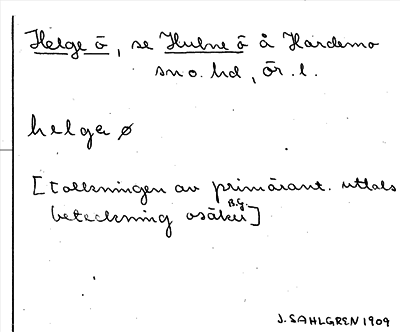 Helge ö, se Hulne ö å Hardemo
sn o. hd, Ör. l.
helga ø
[tolkningen av primärant. uttals
beteckning osäker B.G.]
J. SAHLGREN 1909